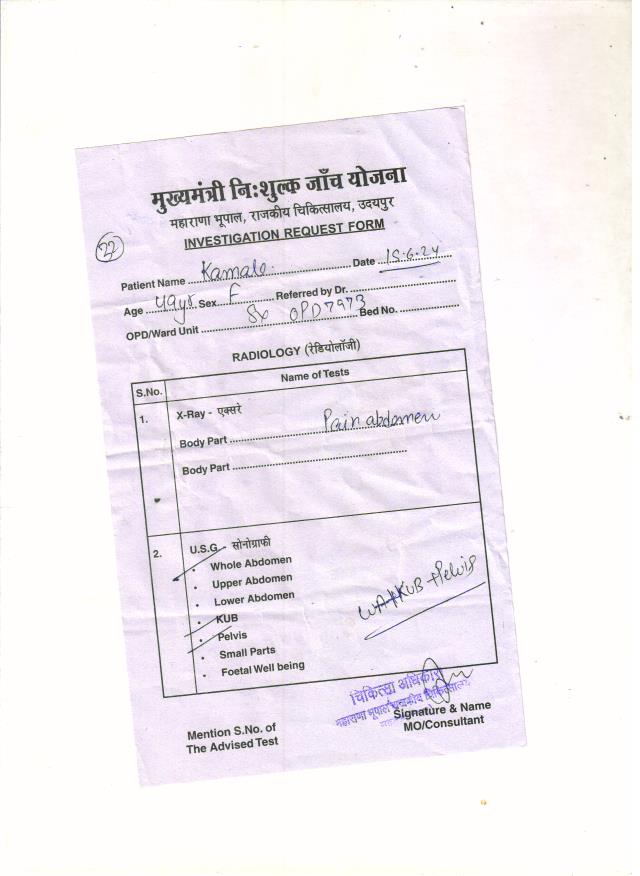 मुख्यमंत्री नि:शुल्क जाँच योजना
महाराणा भूपाल, राजकीय चिकित्सालय, उदयपुर
INVESTIGATION REQUEST FORM
22
Patient Name Kamala. Date 15.6.24
Age 49yr Sex F Referred by Dr.
OPD/Ward Unit OPD 7973 Bed No.
RADIOLOGY (रेडियोलॉजी)
S.No. Name of Tests
1. X-Ray - एक्सरे
Body Part Pain abdomen
Body Part
2. U.S.G. - सोनोग्राफी
• Whole Abdomen
• Upper Abdomen
• Lower Abdomen
• KUB
• Pelvis
• Small Parts
• Foetal Well being
KUB + Pelvis
चिकित्सा अधिकारी
महाराणा भूपाल राजकीय चिकित्सालय
Signature & Name
MO/Consultant
Mention S.No. of
The Advised Test